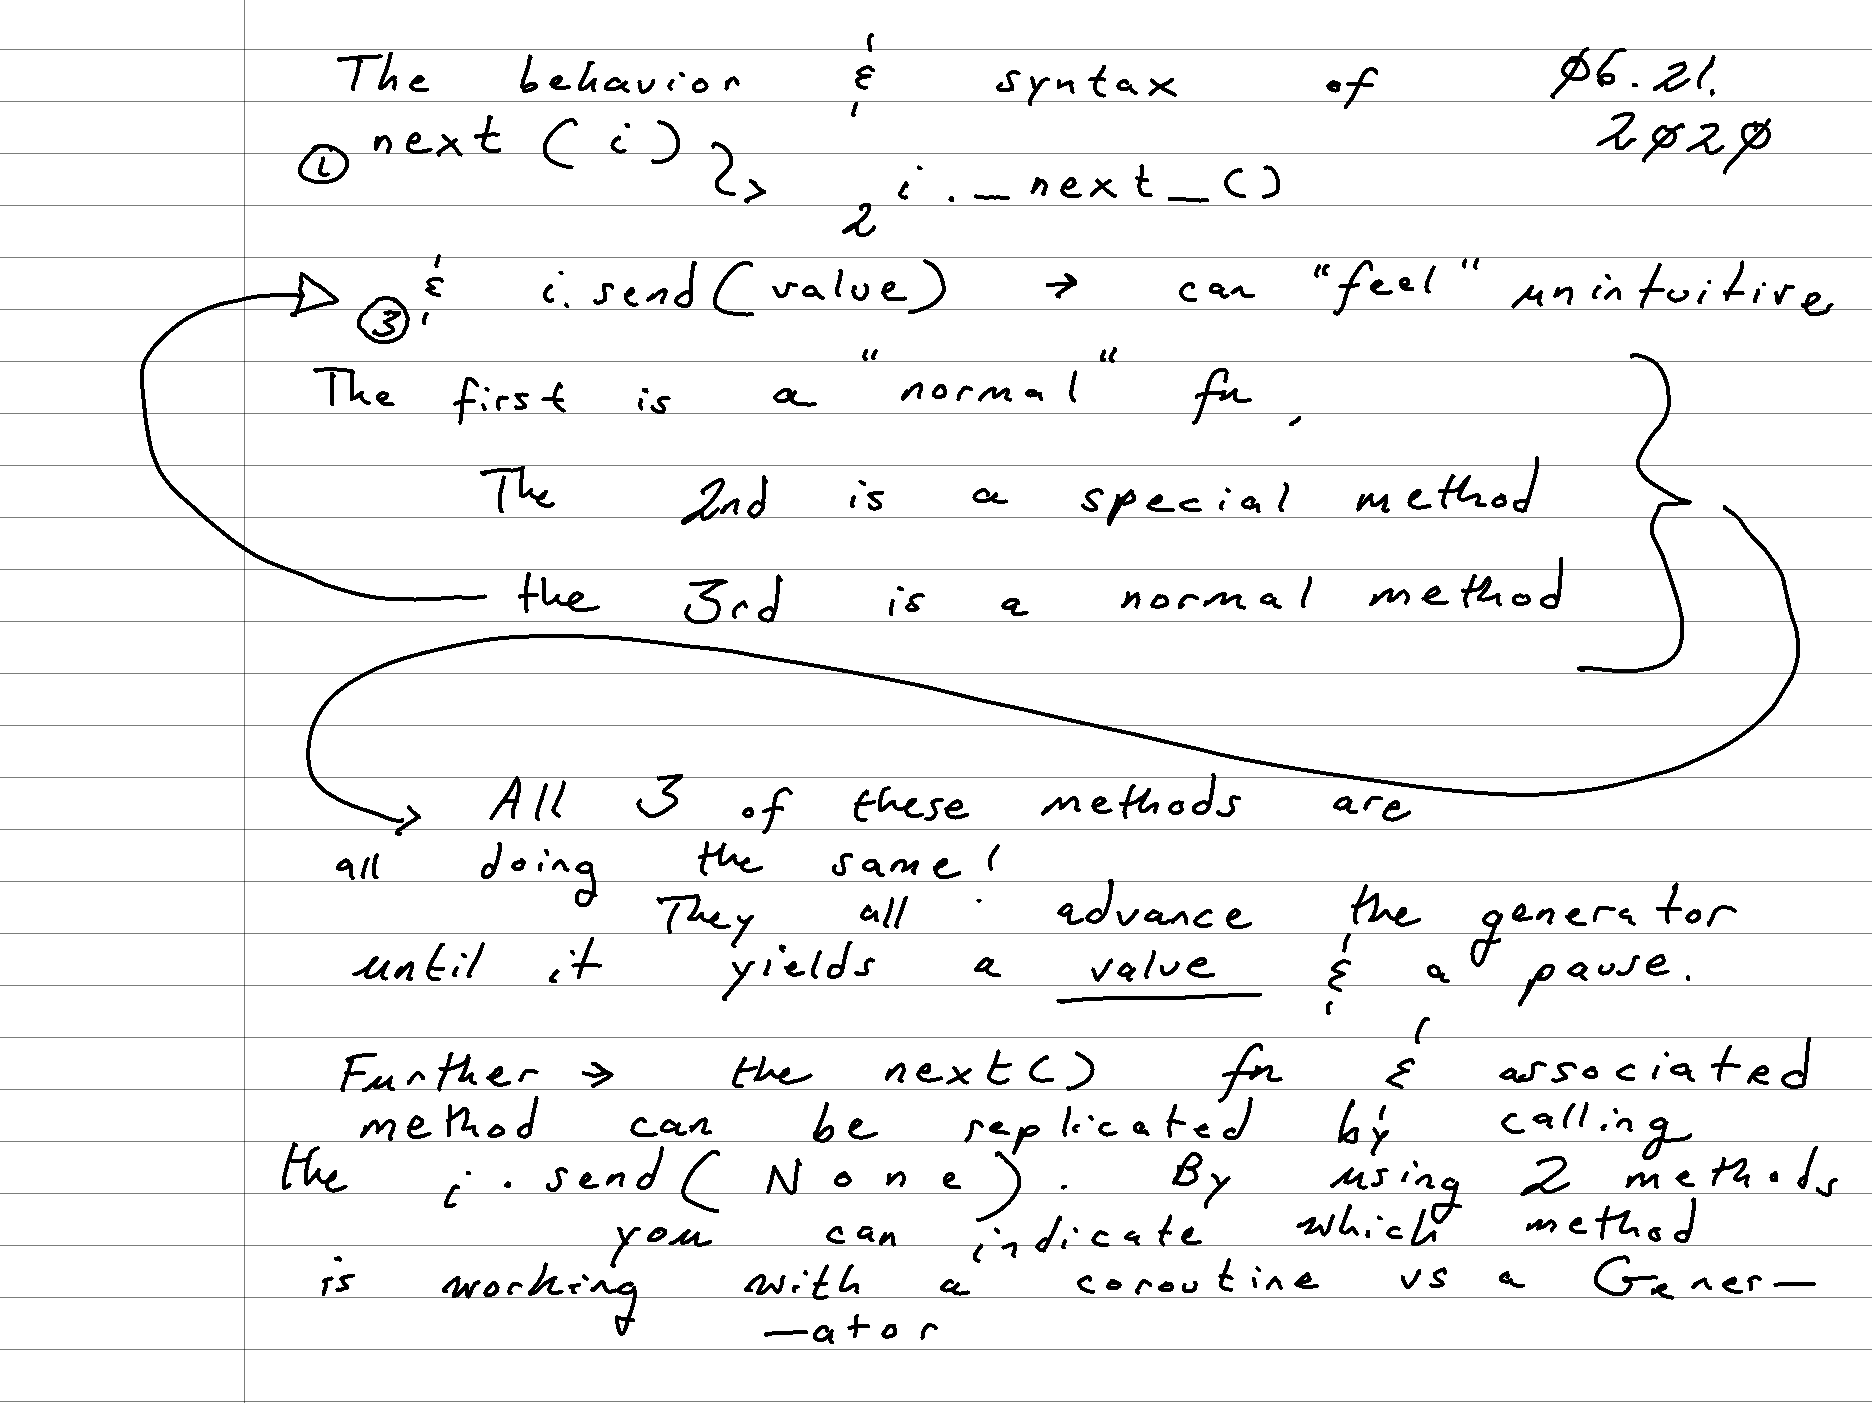 The behavior & syntax of 06.21.
2020
① next (i)
2 i.__next__()
③ & i.send(value) → can "feel" unintuitive
The first is a "normal" fn,
The 2nd is a special method
the 3rd is a normal method
All 3 of these methods are
all doing the same!
They all advance the generator
until it yields a value & a pause.
Further → the next() fn & associated
method can be replicated by calling
the i.send(None). By using 2 methods
you can indicate which method
is working with a coroutine vs a Gener-
-ator